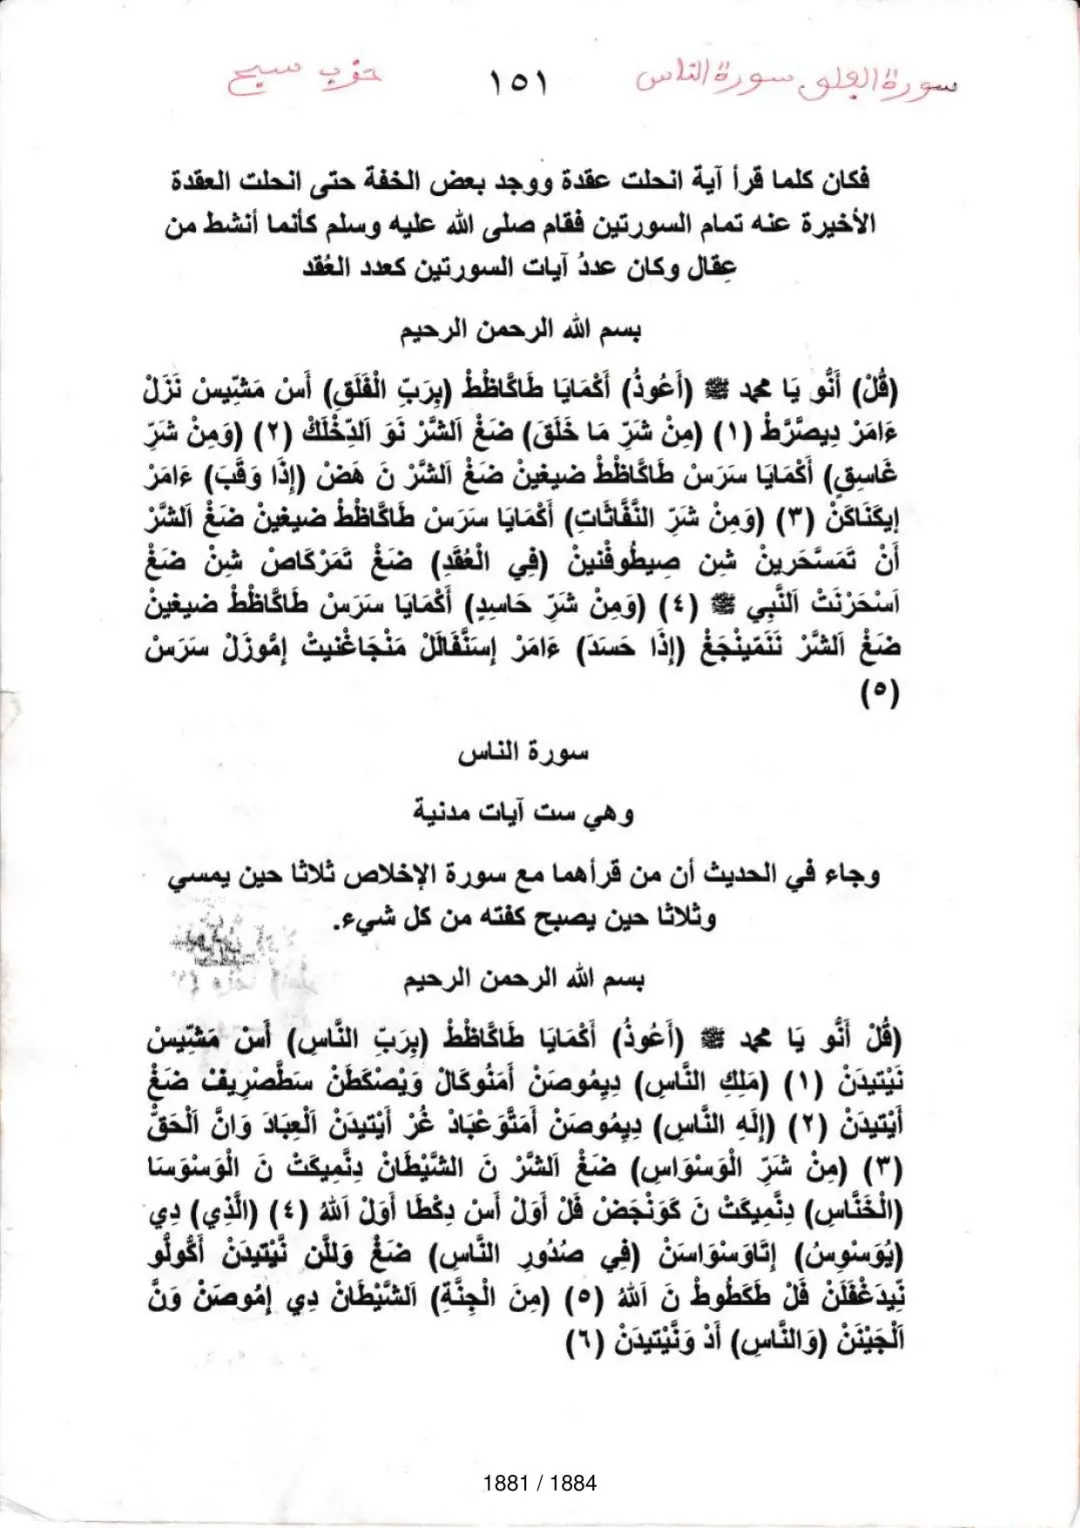 سورة الفلق، سورة الناس ١٥١ حزب سبح
فكان كلما قرأ آية انحلت عقدة ووجد بعض الخفة حتى انحلت العقدة
الأخيرة عنه تمام السورتين فقام صلى الله عليه وسلم كأنما أنشط من
عِقال وكان عددُ آيات السورتين كعدد العُقد
بسم الله الرحمن الرحيم
(قُلْ) أَنُّو يَا محمد ﷺ (أَعُوذُ) أَكْمَايَا طَاكَّاظَظْ (بِرَبِّ الْفَلَقِ) أَسْ مَسِّيسْ نَزَلْ
ءَامَرْ دِيصَرَّطْ (١) (مِنْ شَرِّ مَا خَلَقَ) ضَغْ اَلشَّرْ نَوَ اَلدِّخْلَكْ (٢) (وَمِنْ شَرِّ
غَاسِقٍ) أَكْمَايَا سَرَسْ طَاكَّاظَظْ ضيغينْ ضَغْ اَلشَّرْ نَ هَضْ (إِذَا وَقَبَ) ءَامَرْ
إِيكَنَاكَنْ (٣) (وَمِنْ شَرِّ النَّفَّاثَاتِ) أَكْمَايَا سَرَسْ طَاكَّاظَظْ ضيغينْ ضَغْ اَلشَّرْ
أَنْ تَمَسَّحَرِينْ شَن صيطُوفْنينْ (فِي الْعُقَدِ) ضَغْ تَمَرْكَاصْ شَنْ ضَغْ
اَسْحَرْنَتْ اَلنَّبِي ﷺ (٤) (وَمِنْ شَرِّ حَاسِدٍ) أَكْمَايَا سَرَسْ طَاكَّاظَظْ ضيغينْ
ضَغْ اَلشَّرْ نَنَمِينْجَغْ (إِذَا حَسَدَ) ءَامَرْ إِسَنَّفَالَلْ مَنْجَاغْنيتْ إِمُّوزَلْ سَرَسْ
(٥)
سورة الناس
وهي ست آيات مدنية
وجاء في الحديث أن من قرأهما مع سورة الإخلاص ثلاثا حين يمسي
وثلاثا حين يصبح كفته من كل شيء.
بسم الله الرحمن الرحيم
(قُلْ أَنُّو يَا محمد ﷺ (أَعُوذُ) أَكْمَايَا طَاكَّاظَظْ (بِرَبِّ النَّاسِ) أَسْ مَشِّيسْ
نَيْتِيدَنْ (١) (مَلِكِ النَّاسِ) دِيِمُوصَنْ أَمَنُوكَالْ وَيْصْكَطَنْ سَطَّصْرِيفْ ضَغْ
أَيْتِيدَنْ (٢) (إِلَهِ النَّاسِ) دِيِمُوصَنْ أَمَتَّوَعْبَادْ غُرْ أَيْتِيدَنْ اَلْعِبَادَ وَانَّ اَلْحَقَّ
(٣) (مِنْ شَرِّ الْوَسْوَاسِ) ضَغْ اَلشَّرْ نَ الشَّيْطَانْ دِنَّمِيكَتْ نَ الْوَسْوَسَا
(الْخَنَّاسِ) دِنَّمِيكَتْ نَ كَوَنْجَضْ فَلْ أَوَلْ أَسْ دِكْطَا أَوَلْ اَللهُ (٤) (الَّذِي) دِي
(يُوَسْوِسُ) إِتَّاوَسْوَاسَنْ (فِي صُدُورِ النَّاسِ) ضَغْ وَلْلَن نَّيْتِيدَنْ أَكُّولُو
نِّيدَغْفَلَنْ فَلْ طَكَطُوطْ نَ اَللهُ (٥) (مِنَ الْجِنَّةِ) اَلشَّيْطَانْ دِي إِمُوصَنْ وَنَّ
اَلْجَيْنَنْ (وَالنَّاسِ) أَدْ وَنَّيْتِيدَنْ (٦)
1881 / 1884